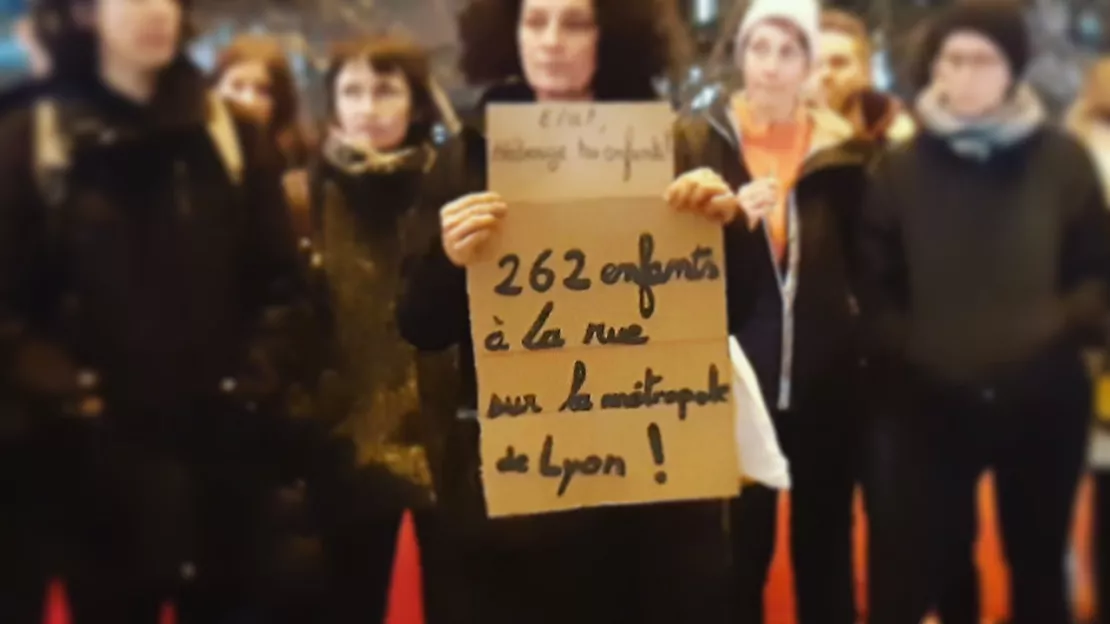 État,
héberge tes enfants !
262 enfants
à la rue
sur la métropole
de Lyon !